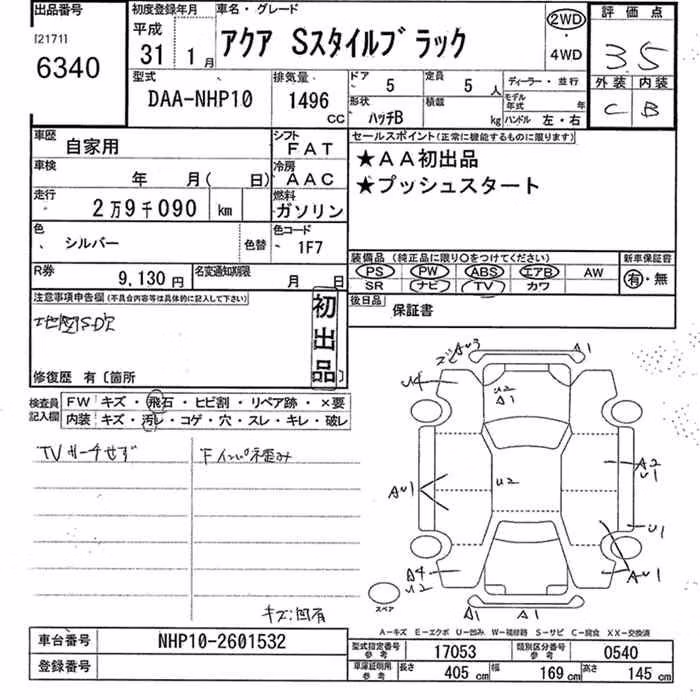 出品番号 初度登録年月 車名・グレード 2WD 評価点
[2171] 平成
6340 31年 1月 アクア Sスタイルブラック ・ 4WD 3.5
型式 排気量 ドア 5 定員 5人 ディーラー・並行 外装 内装
DAA-NHP10 1496cc 形状 ハッチB 積載 kg モデル年式 年 ハンドル 左・右 C B
車歴 自家用 シフト FAT セールスポイント(正常に機能するものに限ります)
車検 年 月( 日) 冷房 AAC ★AA初出品
走行 2万9千090 km 燃料 ガソリン ★プッシュスタート
色 、 シルバー 色替 色コード 1F7
装備品 (純正品に限り○をつけてください) 新車保証書
R券 9,130円 名変通知期限 月 日 PS PW ABS エアB AW 有・無
SR ナビ TV カワ
注意事項申告欄(不具合内容等は具体的に記入して下さい) 初出品 後日品 保証書
修復歴 有〔箇所 〕
検査員記入欄 FW キズ・飛石・ヒビ割・リペア跡・×要
内装 キズ・汚レ・コゲ・穴・スレ・キレ・破レ
TVサーチせず Fインパ歪み
キズ:凹有
AU3 A1
U4 U2
A1
AU1 U2 A2
U1
U1
A4 AU1
U2
スペア A1 A1
A-キズ E-エクボ U-凹み W-補修跡 S-サビ C-腐食 XX-交換済
車台番号 NHP10-2601532
型式指定番号 参考 17053 類別区分番号 参考 0540
登録番号 車庫証明用 参考 長さ 405cm 幅 169cm 高さ 145cm